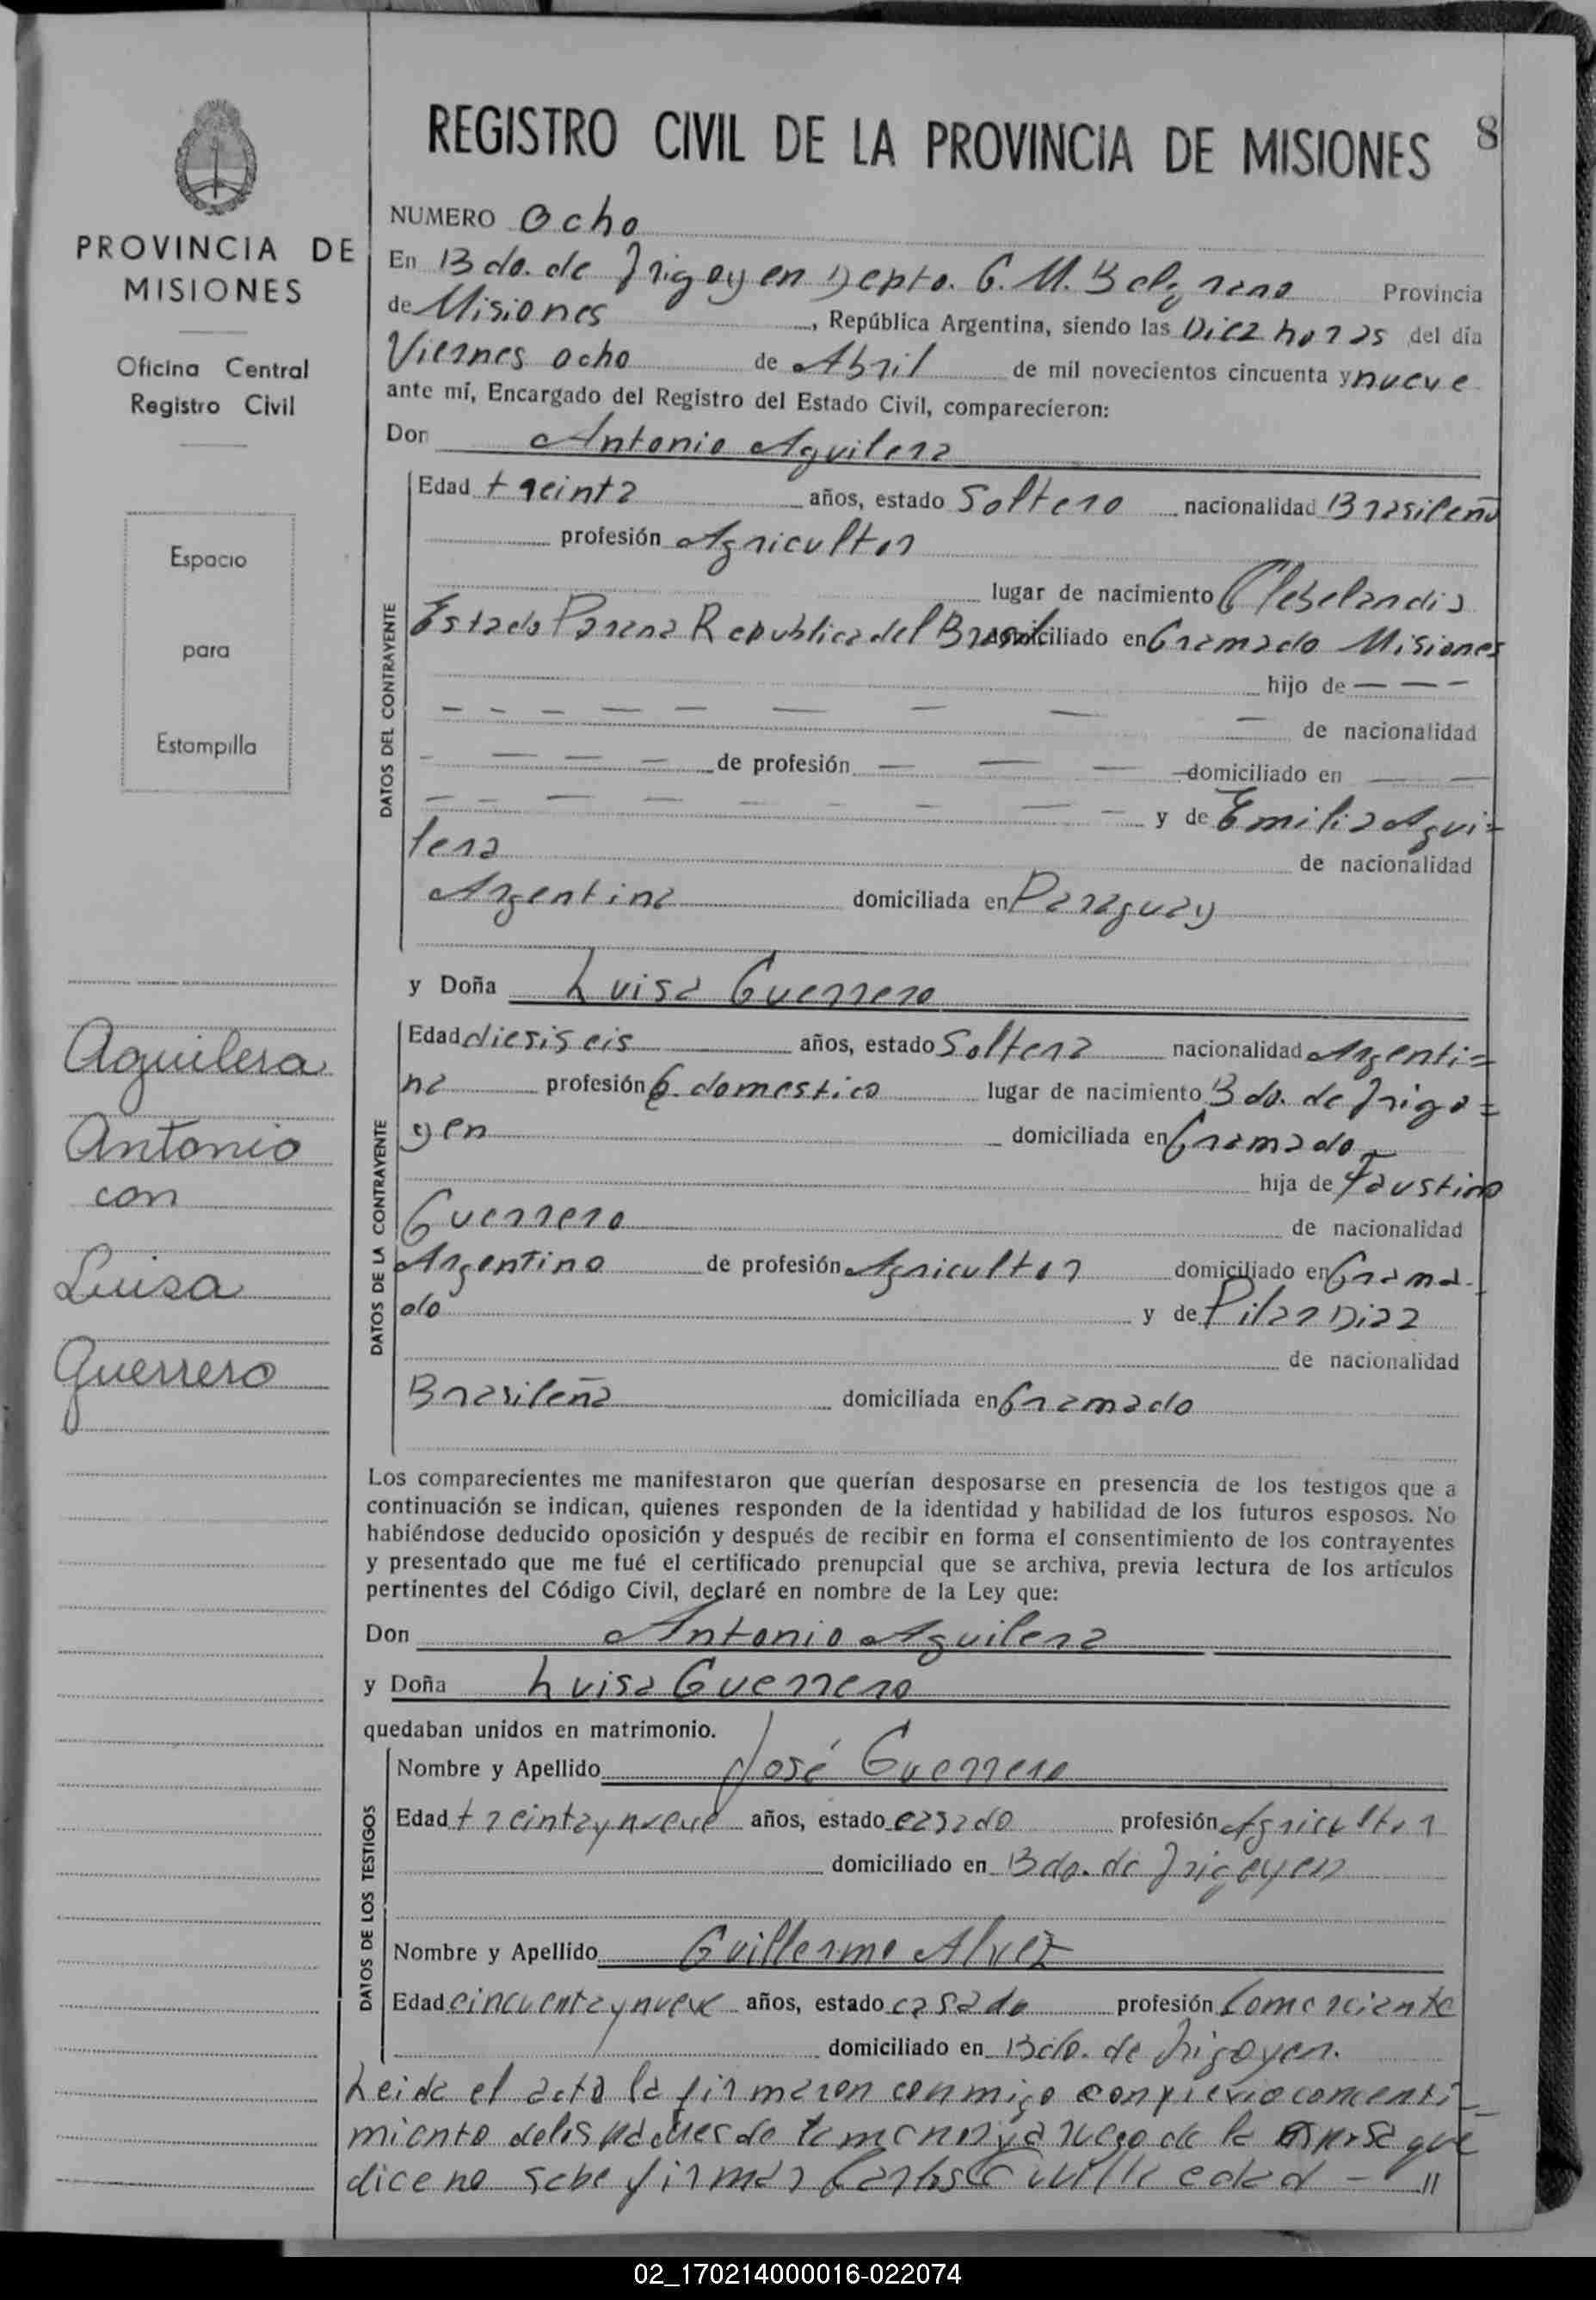 REGISTRO CIVIL DE LA PROVINCIA DE MISIONES 8
PROVINCIA DE
MISIONES
Oficina Central
Registro Civil
Espacio
para
Estampilla
Aguilera
Antonio
con
Luisa
Guerrero
NUMERO Ocho
En Bdo. de Irigoyen Depto. G. M. Belgrano Provincia
de Misiones, República Argentina, siendo las Diez horas del día
Viernes ocho de Abril de mil novecientos cincuenta y nueve
ante mí, Encargado del Registro del Estado Civil, comparecieron:
Don Antonio Aguilera
DATOS DEL CONTRAYENTE
Edad treinta años, estado Soltero nacionalidad Brasileño
profesión Agricultor
lugar de nacimiento Clebelandia
Estado Parana Republica del Brasil domiciliado en Gramado Misiones
hijo de — — —
— — — — — — — — — de nacionalidad
— — — — de profesión — — — domiciliado en — —
— — — — — — — — — y de Emilia Agui=
lera de nacionalidad
Argentina domiciliada en Paraguay
y Doña Luisa Guerrero
DATOS DE LA CONTRAYENTE
Edad diesiseis años, estado Soltera nacionalidad Argenti=
na profesión Q. domestico lugar de nacimiento Bdo. de Irigo=
yen domiciliada en Gramado
hija de Faustino
Guerrero de nacionalidad
Argentino de profesión Agricultor domiciliado en Grama-
do y de Pilar Diaz
de nacionalidad
Brasileña domiciliada en Gramado
Los comparecientes me manifestaron que querían desposarse en presencia de los testigos que a
continuación se indican, quienes responden de la identidad y habilidad de los futuros esposos. No
habiéndose deducido oposición y después de recibir en forma el consentimiento de los contrayentes
y presentado que me fué el certificado prenupcial que se archiva, previa lectura de los artículos
pertinentes del Código Civil, declaré en nombre de la Ley que:
Don Antonio Aguilera
y Doña Luisa Guerrero
quedaban unidos en matrimonio.
DATOS DE LOS TESTIGOS
Nombre y Apellido José Guerrero
Edad treinta y nueve años, estado casado profesión Agricultor
domiciliado en Bdo. de Irigoyen
Nombre y Apellido Guillermo Alvez
Edad cincuenta y nueve años, estado casado profesión Comerciante
domiciliado en Bdo. de Irigoyen.
Leida el acta la firmaron conmigo con previo concenti=
miento delos padres de la menor y a ruego de la esposa que
dice no sabe firmar Carlos edad — "
02_170214000016-022074